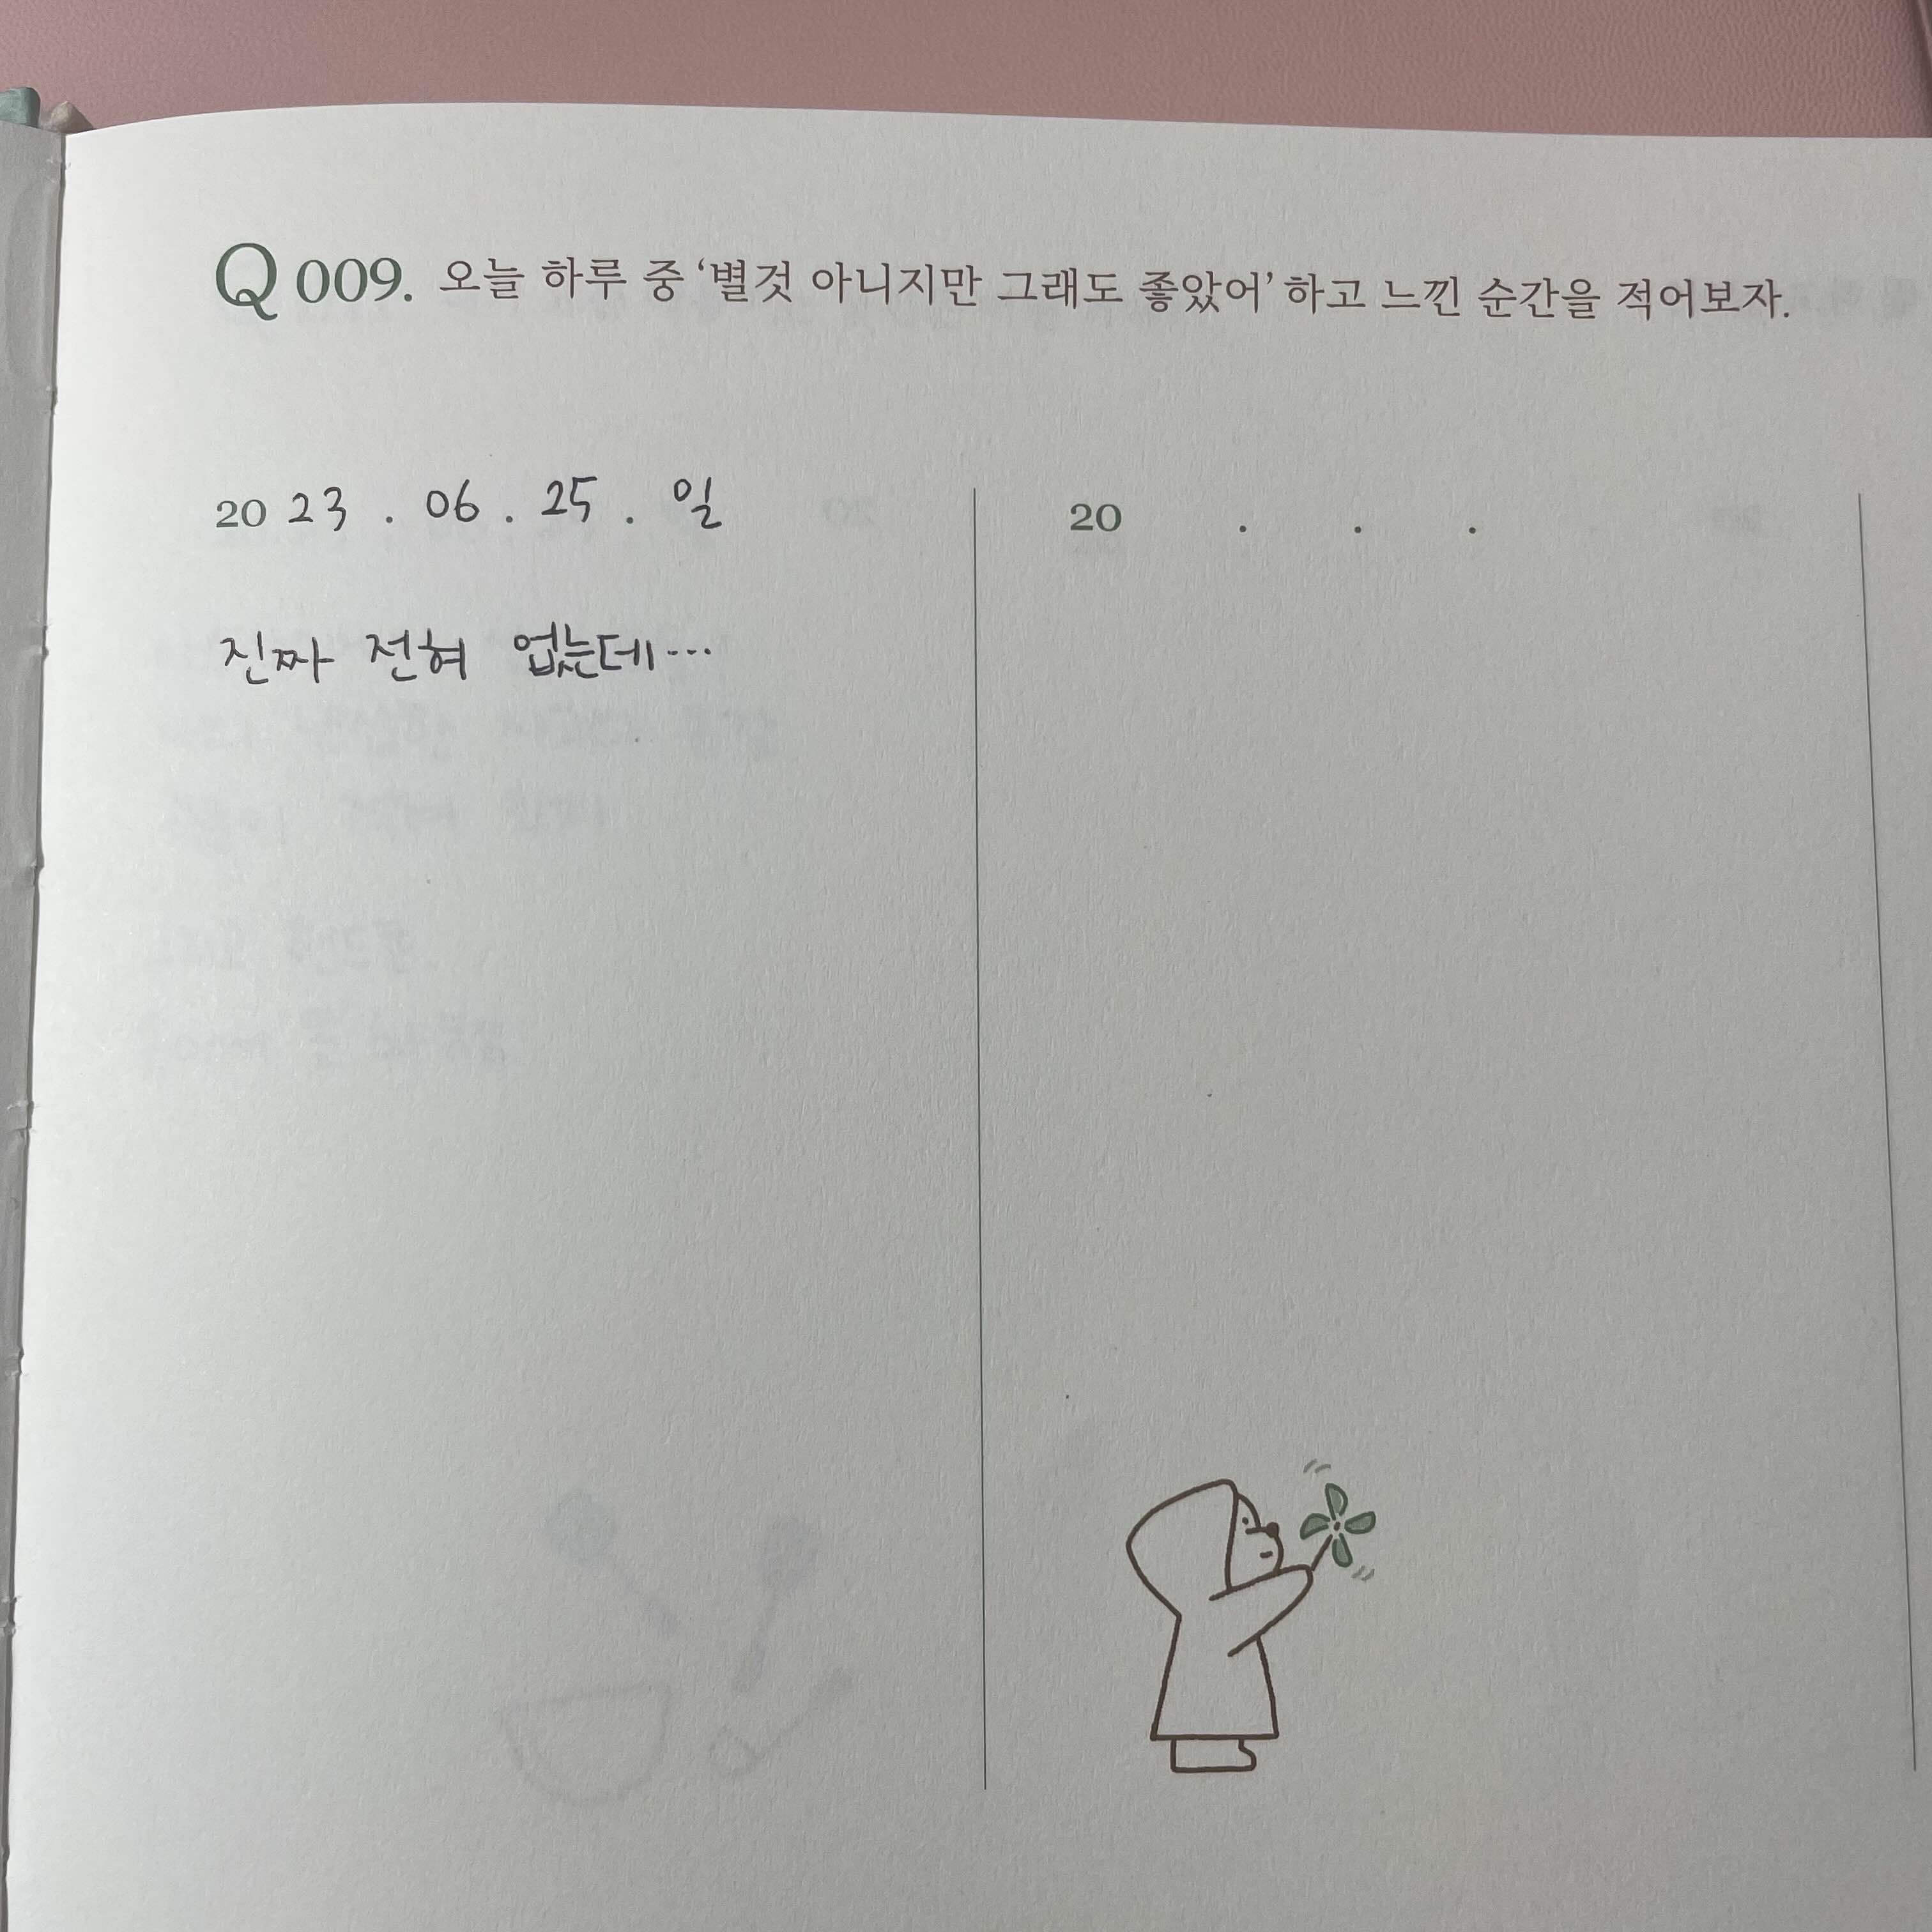 Q 009. 오늘 하루 중 ‘별것 아니지만 그래도 좋았어’ 하고 느낀 순간을 적어보자.
20 23 . 06 . 25 . 일
진짜 전혀 없는데...
20 . . .